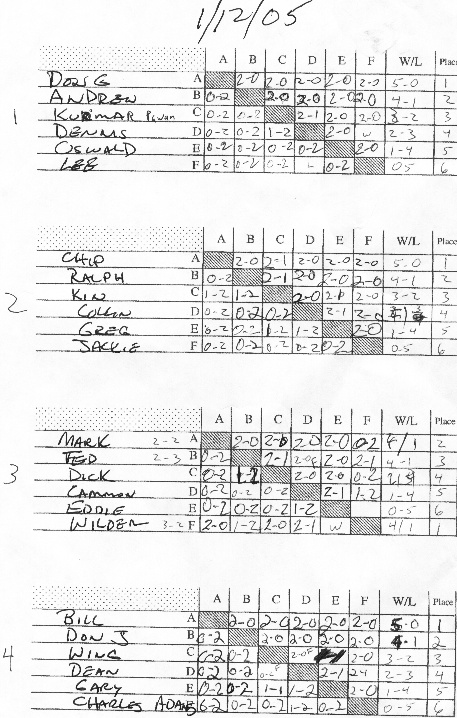 1/12/05
A B C D E F W/L Place
1
DOUG A 2-0 2-0 2-0 2-0 2-0 5-0 1
ANDREW B 0-2 2-0 2-0 2-0 2-0 4-1 2
KUMAR C 0-2 0-2 2-1 2-0 2-0 3-2 3
DENNIS D 0-2 0-2 1-2 2-0 W 2-3 4
OSWALD E 0-2 0-2 0-2 0-2 2-0 1-4 5
LEE F 0-2 0-2 0-2 L 0-2 0-5 6
A B C D E F W/L Place
2
CHIP A 2-0 2-1 2-0 2-0 2-0 5-0 1
RALPH B 0-2 2-1 2-0 2-0 2-0 4-1 2
KIN C 1-2 1-2 2-0 2-1 2-0 3-2 3
COLLIN D 0-2 0-2 0-2 2-1 2-0 4
GREG E 0-2 0-2 1-2 1-2 2-0 1-4 5
JACKIE F 0-2 0-2 0-2 0-2 0-2 0-5 6
A B C D E F W/L Place
3
MARK 2-2 A 2-0 2-0 2-0 2-0 0-2 4/1 2
TED 2-3 B 0-2 2-1 2-0 2-0 2-1 4-1 3
DICK C 0-2 1-2 2-0 2-0 0-2 4
CAMMON D 0-2 0-2 0-2 2-1 1-2 1-4 5
EDDIE E 0-2 0-2 0-2 1-2 0-5 6
WILDER 3-2 F 2-0 1-2 2-0 2-1 W 4/1 1
A B C D E F W/L Place
4
BILL A 2-0 2-0 2-0 2-0 2-0 5-0 1
DON J B 0-2 2-0 2-0 2-0 2-0 4-1 2
WING C 0-2 0-2 2-0 2-0 3-2 3
DEAN D 0-2 0-2 0-2 2-1 2-1 2-3 4
GARY E 0-2 0-2 1-1 1-2 2-0 1-4 5
CHARLES ADAMS F 0-2 0-2 0-2 1-2 0-2 0-5 6